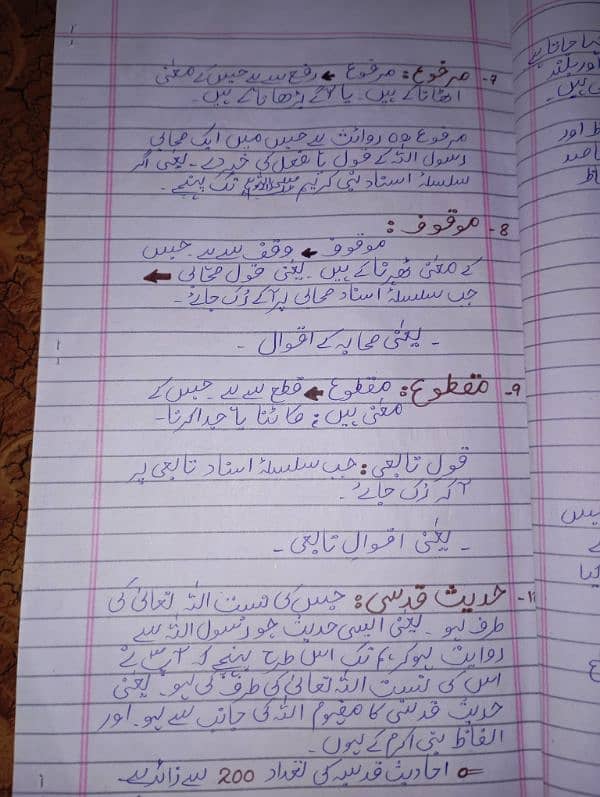 7- مرفوع: مرفوع ← رفع سے ہے جس کے معنٰی
اٹھانا کے ہیں۔ یا آگے بڑھانا کے ہیں۔
مرفوع وہ روائت ہے جس میں ایک صحابی
رسول اللہ کے قول یا فعل کی خبر دے۔ یعنی اگر
سلسلۂ اسناد نبی کریم ﷺ تک پہنچے۔
8- موقوف:
موقوف ← وقف سے ہے۔ جس
کے معنٰی ٹھہرنا کے ہیں۔ یعنٰی قول صحابی ←
جب سلسلۂ اسناد صحابی پر آکے رُک جائے۔
- یعنٰی صحابہ کے اقوال -
9- مقطوع: مقطوع ← قطع سے ہے۔ جس کے
معنٰی ہیں: کاٹنا یا جدا کرنا۔
قول تابعی: جب سلسلۂ اسناد تابعی پر
آکہ رُک جائے۔
- یعنٰی اقوالِ تابعی -
حدیث قدسی: جس کی نسبت اللہ تعالیٰ کی
طرف ہو۔ یعنٰی ایسی حدیث جو رسول اللہ سے
روایت ہوکر ہم تک اس طرح پہنچے کہ آپؐ نے
اس کی نسبت اللہ تعالیٰ کی طرف کی ہو۔ یعنٰی
حدیث قدسی کا مفہوم اللہ کی جانب سے ہو۔ اور
الفاظ نبی اکرم کے ہوں۔
احادیث قدسیہ کی تعداد 200 سے زائد ہے